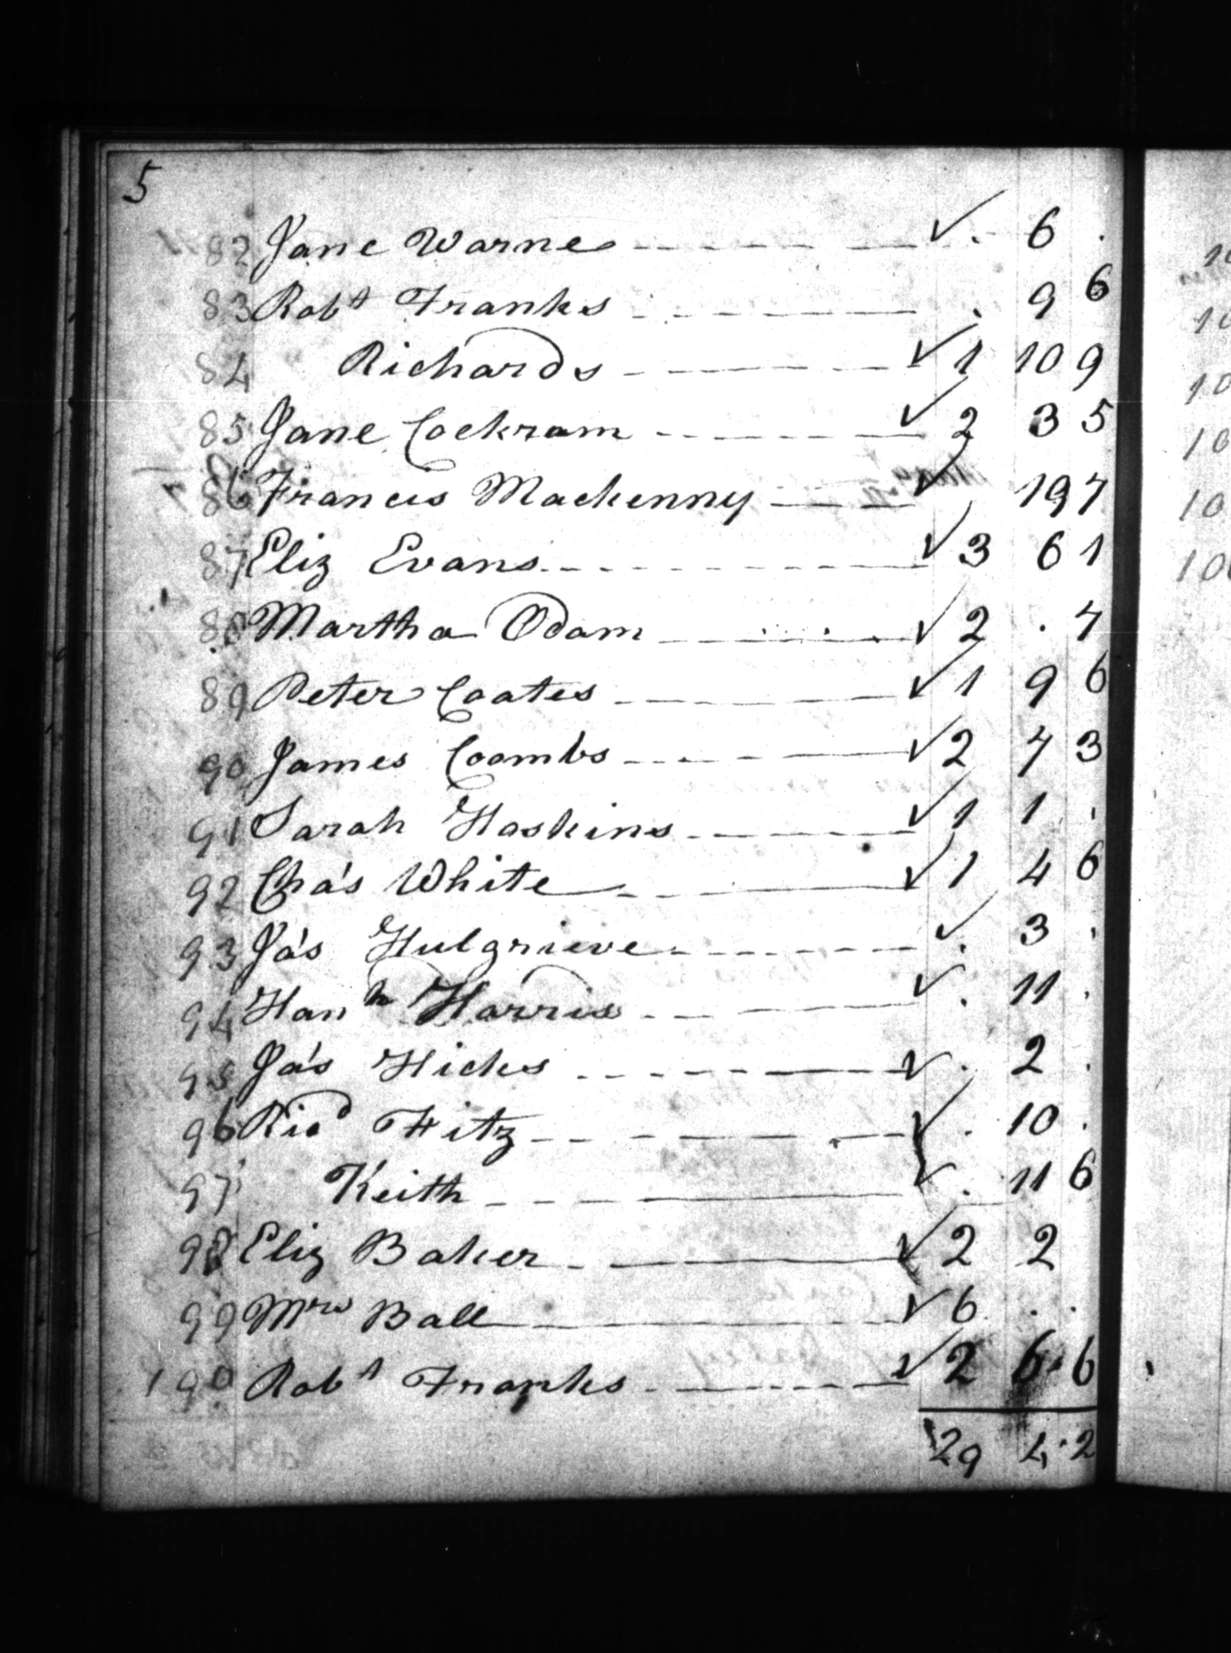 5
82 Jane Warne ✓ . 6 .
83 Robt Franks . 9 6
84 Richards ✓ 1 10 9
85 Jane Cockram ✓ 2 3 5
86 Francis Mackenny ✓ 19 7
87 Eliz Evans ✓ 3 6 1
88 Martha Odam ✓ 2 . 7
89 Peter Coates ✓ 1 9 6
90 James Coombs ✓ 2 7 3
91 Sarah Hoskins ✓ 1 1 .
92 Cha's White ✓ 1 4 6
93 Ja's Hulgrieve ✓ . 3 .
94 Hanh Harris ✓ . 11 .
95 Ja's Hicks ✓ . 2 .
96 Ricd Fitz ✓ . 10 .
97 Keith ✓ . 11 6
98 Eliz Baker ✓ 2 2
99 Mrs Ball ✓ 6 . .
100 Robt Franks ✓ 2 6 . 6
29 4 . 2